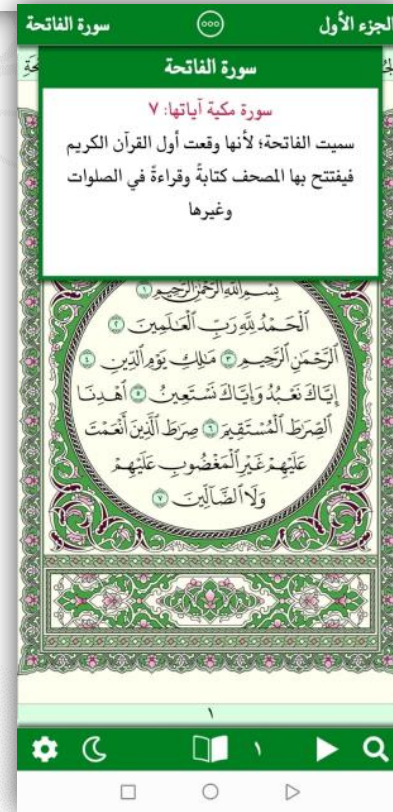 الجزء الأول
سورة الفاتحة
سورة الفاتحة
سورة مكية آياتها: ٧
سميت الفاتحة؛ لأنها وقعت أول القرآن الكريم
فيفتتح بها المصحف كتابةً وقراءةً في الصلوات
وغيرها
بِسْمِ ٱللَّهِ ٱلرَّحْمَٰنِ ٱلرَّحِيمِ ١
ٱلْحَمْدُ لِلَّهِ رَبِّ ٱلْعَٰلَمِينَ ٢
ٱلرَّحْمَٰنِ ٱلرَّحِيمِ ٣ مَٰلِكِ يَوْمِ ٱلدِّينِ ٤
إِيَّاكَ نَعْبُدُ وَإِيَّاكَ نَسْتَعِينُ ٥ ٱهْدِنَا
ٱلصِّرَٰطَ ٱلْمُسْتَقِيمَ ٦ صِرَٰطَ ٱلَّذِينَ أَنْعَمْتَ
عَلَيْهِمْ غَيْرِ ٱلْمَغْضُوبِ عَلَيْهِمْ
وَلَا ٱلضَّآلِّينَ ٧
١
١